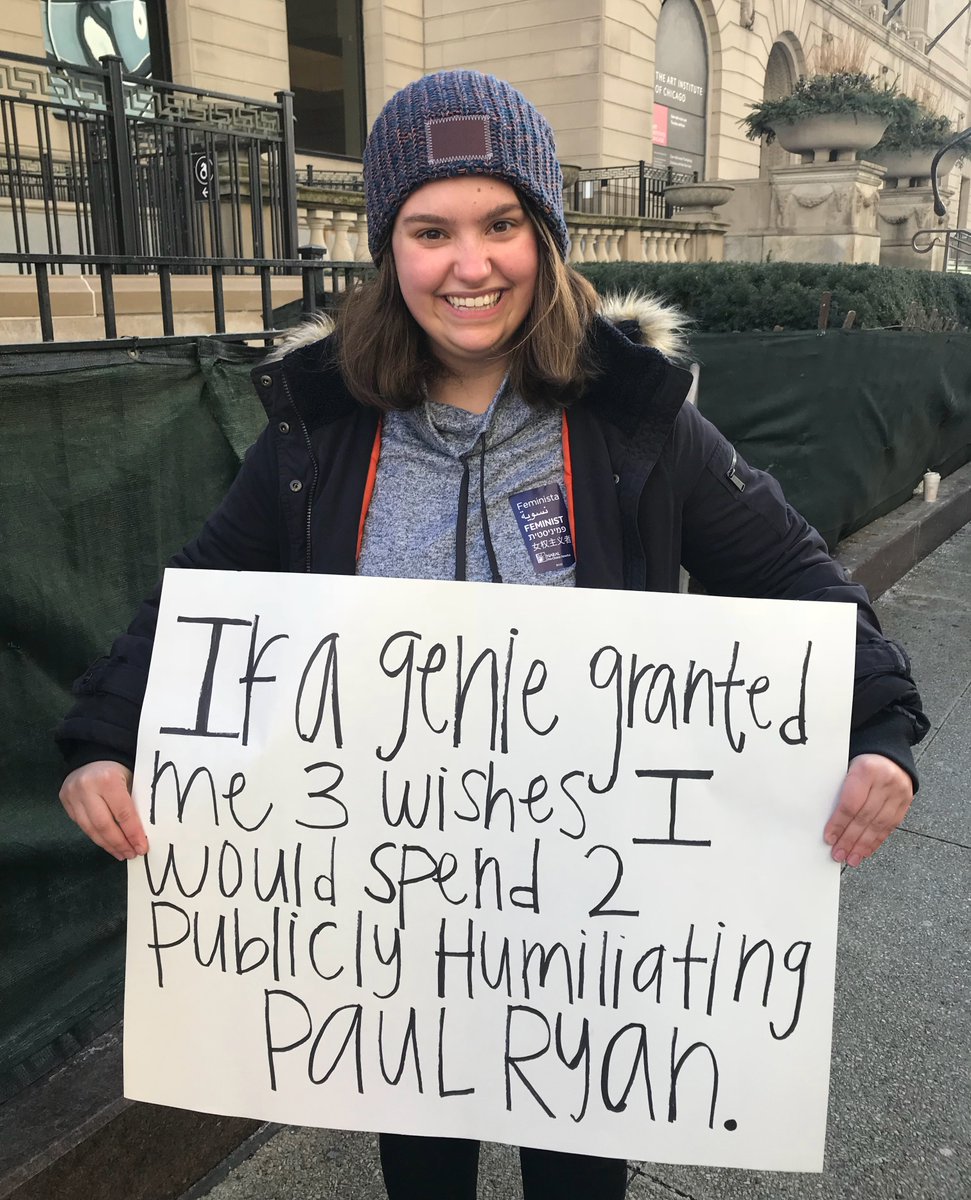 THE ART INSTITUTE
OF CHICAGO
Feminista
نسوية
FEMINIST
פמיניסטית
女权主义者
If a genie granted
me 3 wishes I
would spend 2
Publicly Humiliating
Paul Ryan.